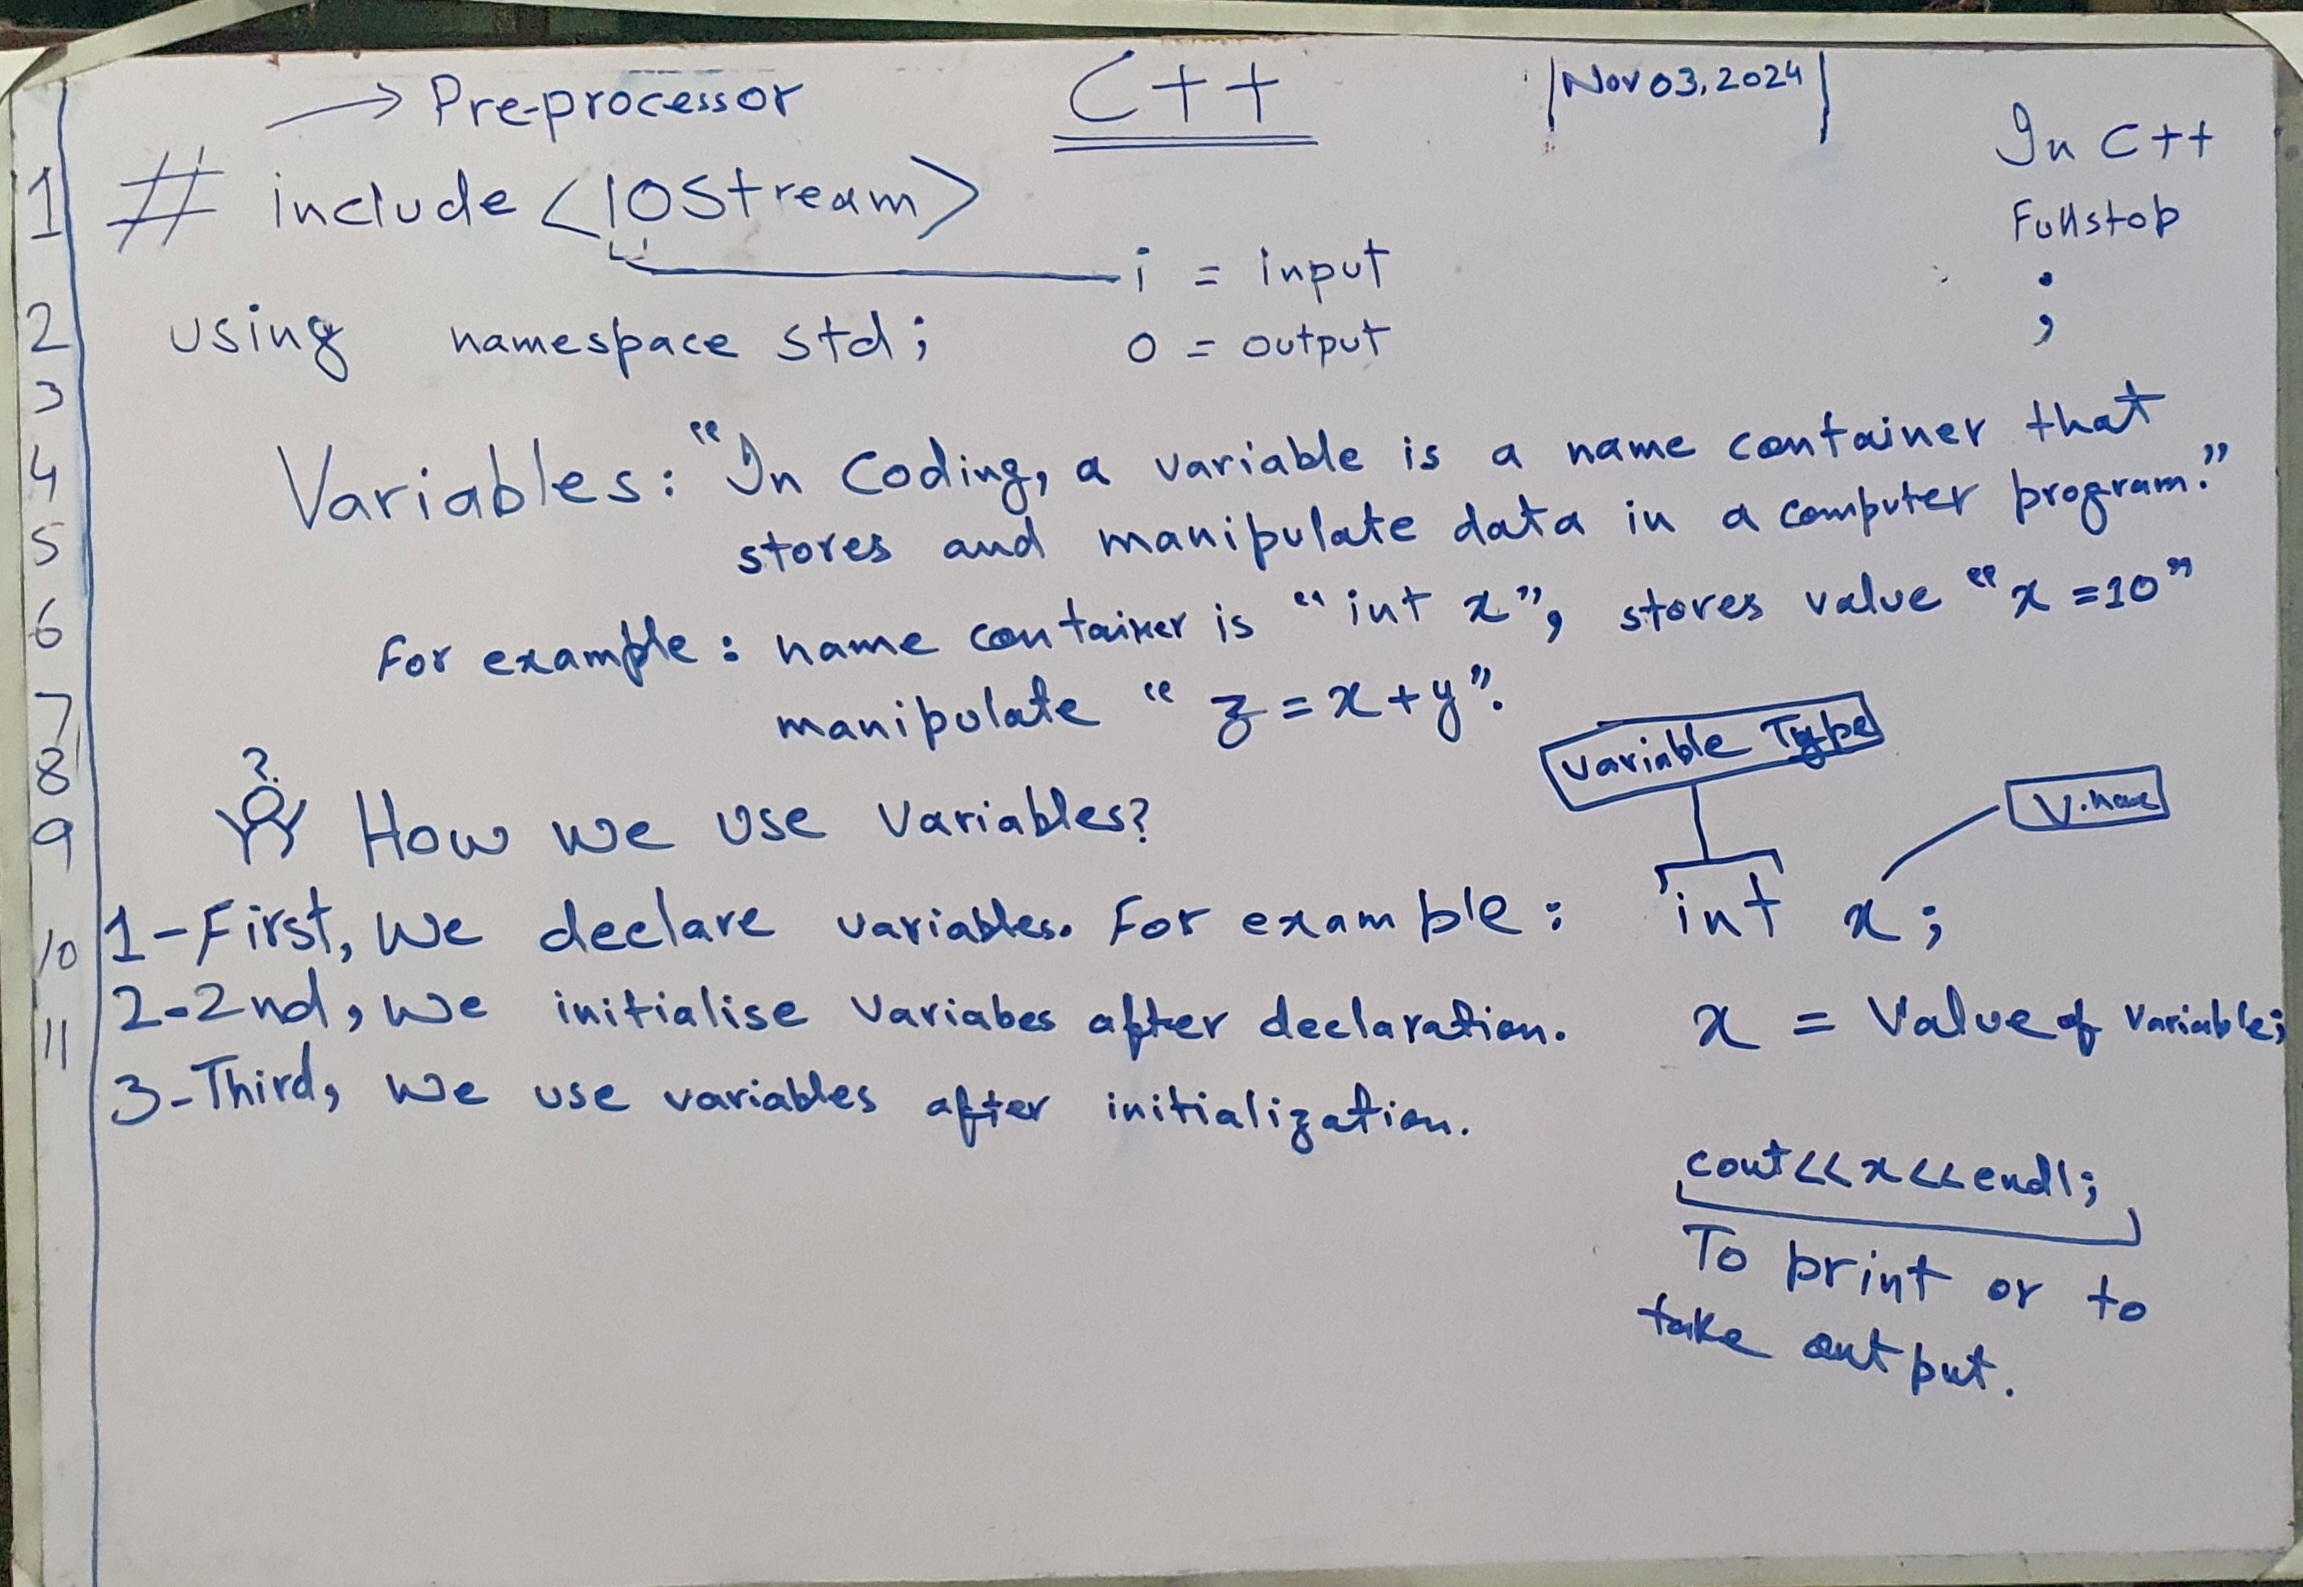 → Pre-processor
C++
Nov 03, 2024
In C++
Fullstop
;
1 # include <IOStream>
i = input
2 using namespace std;
o = output
3
4 Variables: "In Coding, a variable is a name container that
5 stores and manipulate data in a computer program."
6 For example: name container is "int x", stores value "x = 10"
7 manipulate "z = x + y".
Variable Type
8 ?
V.name
9 How we use Variables?
10 1-First, We declare variables. For example: int x;
11 2-2nd, We initialise Variabes after declaration. x = Value of Variable;
3-Third, We use variables after initialization.
cout<<x<<endl;
To print or to
take output.